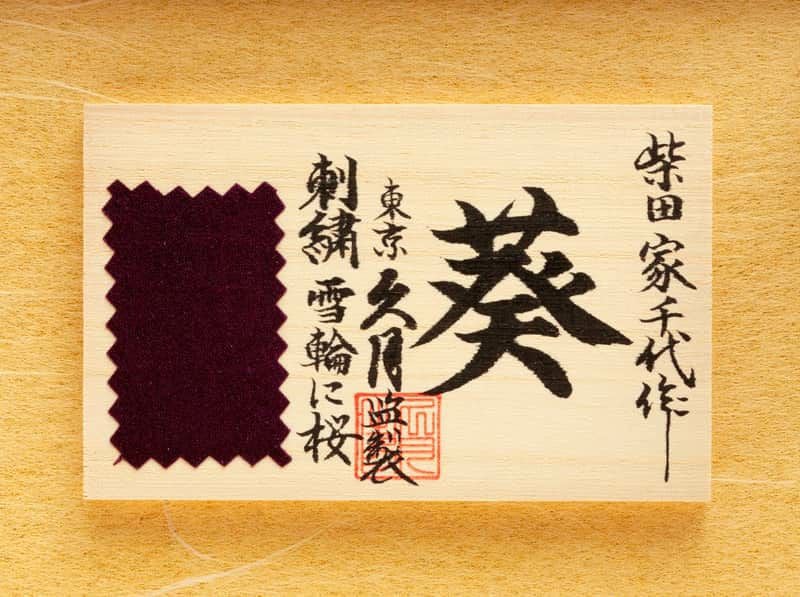 柴田家千代作
葵
東京久月監製
刺繍 雪輪に桜